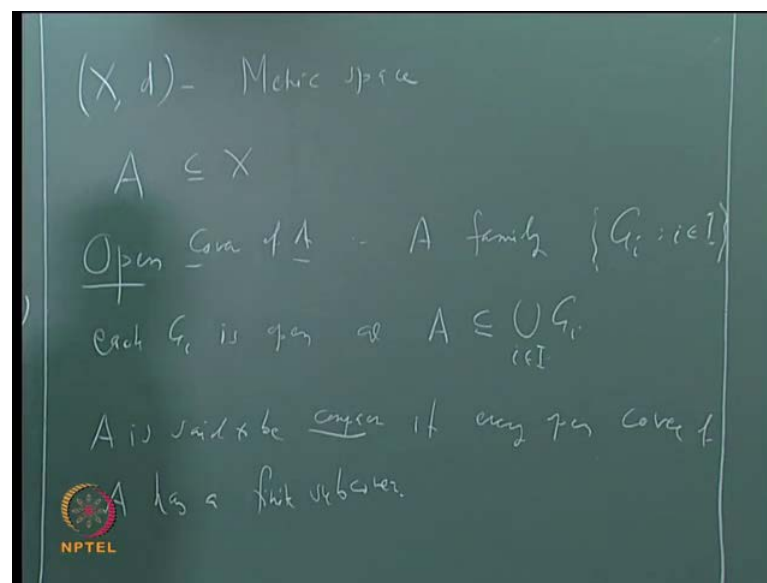 (X, d) - Metric space
A ⊆ X
Open Cover of A - A family {G_i : i ∈ I}
each G_i is open and A ⊆ ⋃_{i∈I} G_i
A is said to be compact if every open cover of
A has a finite subcover.
NPTEL